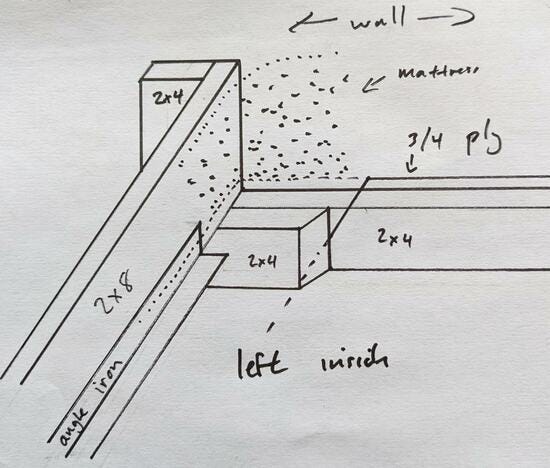 ← wall →
2x4
← mattress
3/4 ply
2x4
2x4
2x8
left inside
angle iron